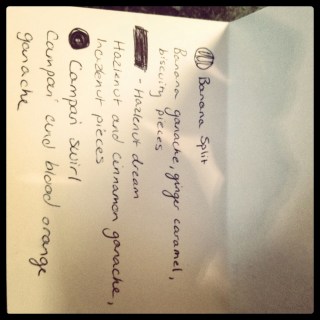 Banana Split
Banana ganache, ginger caramel,
biscuity pieces
- Hazlenut dream
Hazlenut and cinnamon ganache,
hazlenut pieces
Campari swirl
Campari and blood orange
ganache